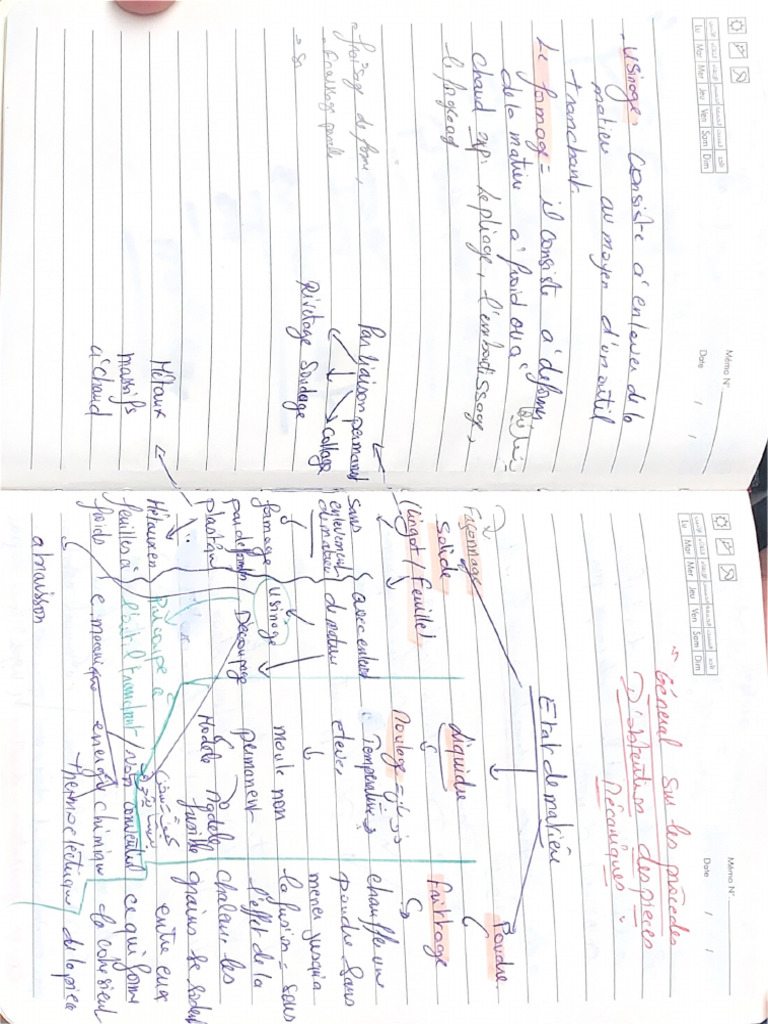 Mémo N°
Date / /
Lu Mar Mer Jeu Ven Sam Dim
- Usinage. Consiste à enlever de la
matière au moyen d'un outil
tranchant.
Le formage = il consiste à déformer
de la matière à froid ou à
chaud exp: le pliage, l'emboutissage,
le forgeage
- fraisage de forme,
Par liaison permanent
Rivetage Soudage collage
Métaux
massifs
à chaud
Mémo N°
Date / /
Lu Mar Mer Jeu Ven Sam Dim
Général Sur les procédés
D'obtention des pièces
Mécaniques.
Etat de matière
Façonnage
Solide
(Lingot / feuille)
liquide
Poudre
frittage
Sans
enlevement
de matière
formage
par deform
plastique
Métaux en
feuilles à
froids
Usinage
Découpage
l'outil tranchant
Non conventiel
e. mecanique energy chimique
thermoelectrique
abraison
Moulage
Température
elever
moule non
permanent
Modèle
fusible
chauffer un
poudre Sans
mener jusqu'à
la fusion = Sous
l'effet de la
chaleur les
grains se Soudent
entre eux
ce qui forme
la cohésient
de la pièce